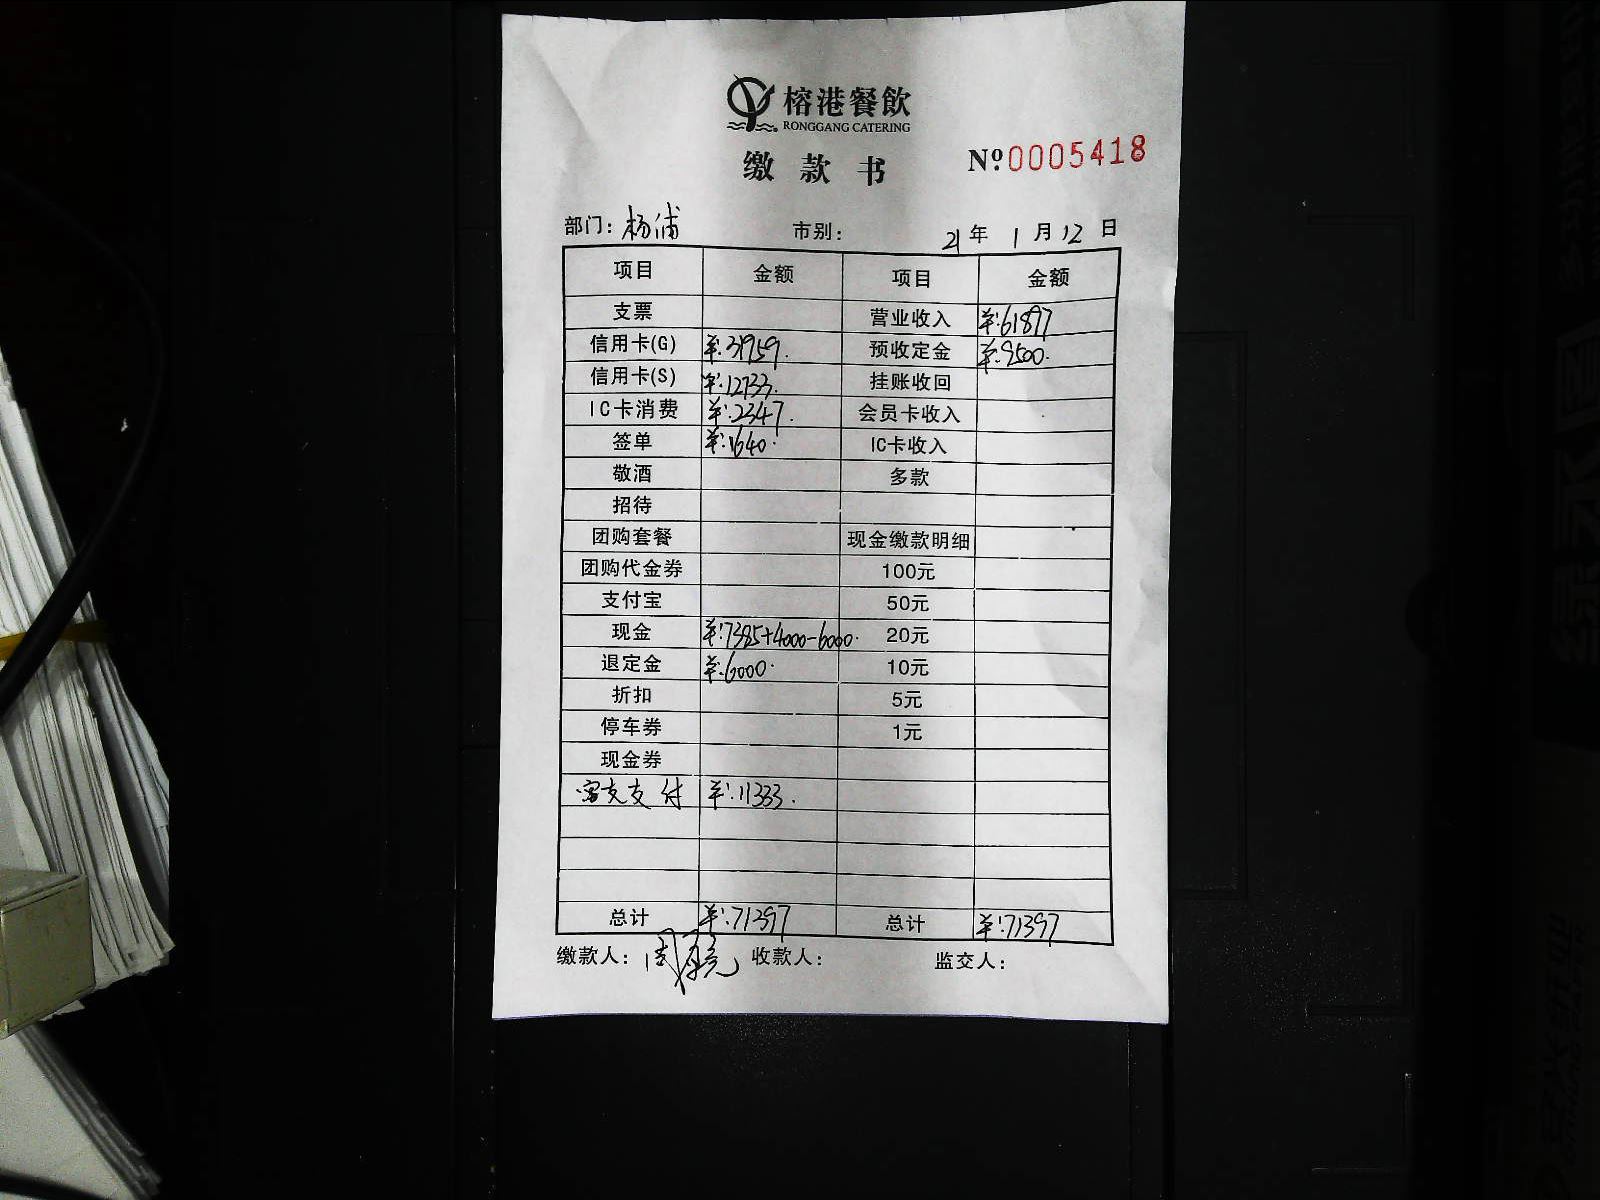 榕港餐飲
RONGGANG CATERING
缴款书
Nº0005418
部门：杨浦 市别： 21年 1月12日
项目 金额 项目 金额
支票 营业收入 ¥：61897
信用卡(G) ¥：31959. 预收定金 ¥：9500.
信用卡(S) ¥：12733. 挂账收回
IC卡消费 ¥：2347. 会员卡收入
签单 ¥：1640. IC卡收入
敬酒 多款
招待
团购套餐 现金缴款明细
团购代金券 100元
支付宝 50元
现金 ¥：7385+4000-6000. 20元
退定金 ¥：6000. 10元
折扣 5元
停车券 1元
现金券
支付 ¥：11333.
总计 ¥：71397 总计 ¥：71397
缴款人：周 收款人： 监交人：